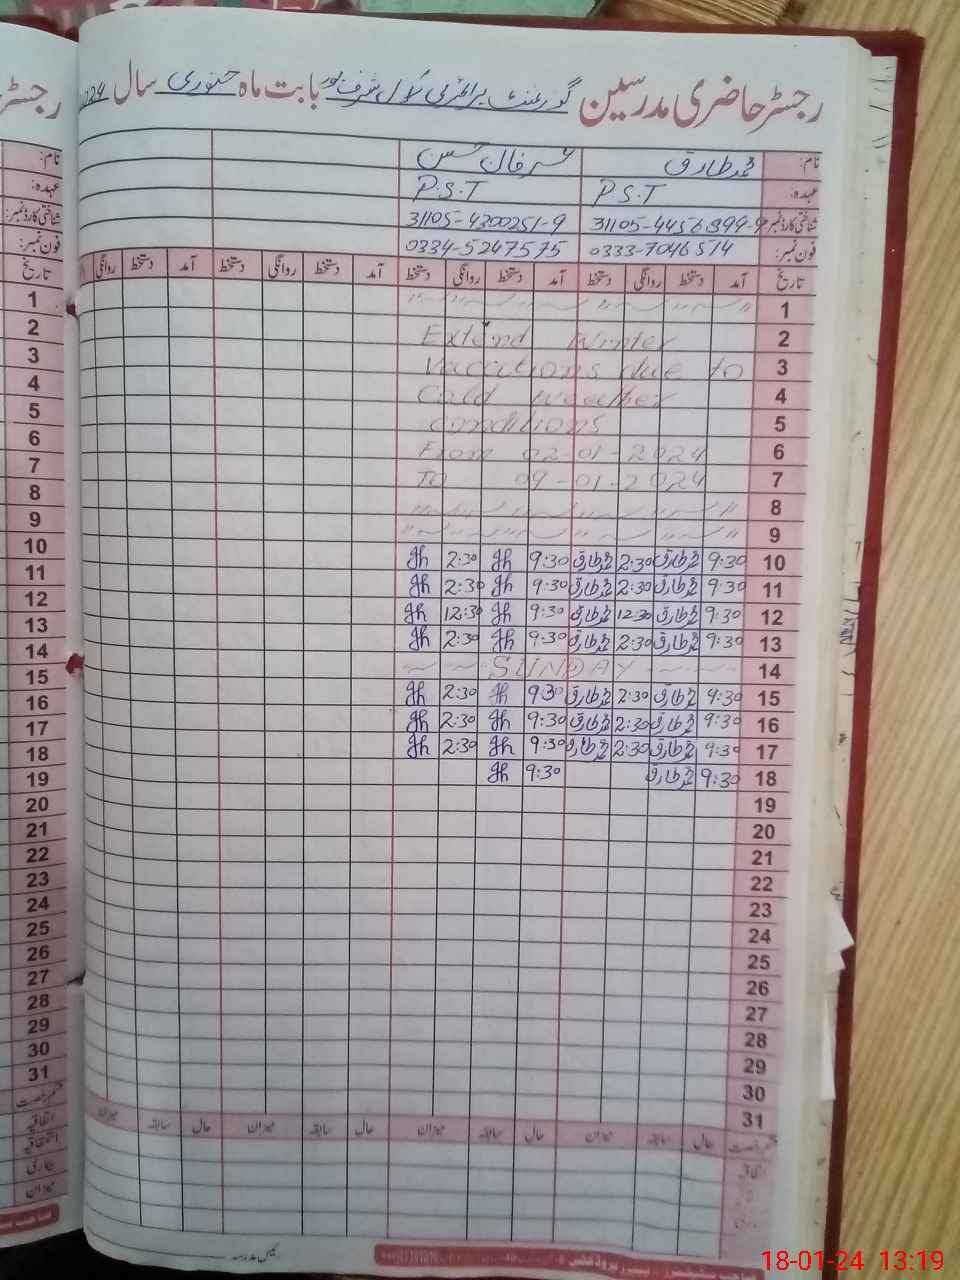 رجسٹر حاضری مدرسین گورنمنٹ پرائمری سکول شرف پور بابت ماہ جنوری سال 2024
نام: محمد طارق عرفان حسن
عہدہ: P.S.T P.S.T
شناختی کارڈ نمبر: 31105-4456999-9 31105-4300251-9
فون نمبر: 0333-7046514 0334-5247575
تاریخ آمد دستخط روانگی دستخط آمد دستخط روانگی دستخط آمد دستخط روانگی دستخط آمد دستخط روانگی
1
2 Extend Winter
3 Vacations due to
4 Cold weather
5 conditions
6 From 02-01-2024
7 To 09-01-2024
8
9
10 9:30 محمد طارق 2:30 محمد طارق 9:30 2:30
11 9:30 محمد طارق 2:30 محمد طارق 9:30 2:30
12 9:30 محمد طارق 12:30 محمد طارق 9:30 12:30
13 9:30 محمد طارق 2:30 محمد طارق 9:30 2:30
14 SUNDAY
15 9:30 محمد طارق 2:30 محمد طارق 930 2:30
16 9:30 محمد طارق 2:30 محمد طارق 9:30 2:30
17 9:30 محمد طارق 2:30 محمد طارق 9:30 2:30
18 9:30 محمد طارق 9:30
19
20
21
22
23
24
25
26
27
28
29
30
31
حال سابقہ میزان حال سابقہ میزان حال سابقہ میزان حال سابقہ میزان
رئیس مدرسہ
رجسٹر
نام:
عہدہ:
شناختی کارڈ نمبر:
فون نمبر:
تاریخ
1
2
3
4
5
6
7
8
9
10
11
12
13
14
15
16
17
18
19
20
21
22
23
24
25
26
27
28
29
30
31
اتفاقیہ
استحقاقیہ
بیماری
میزان
18-01-24 13:19